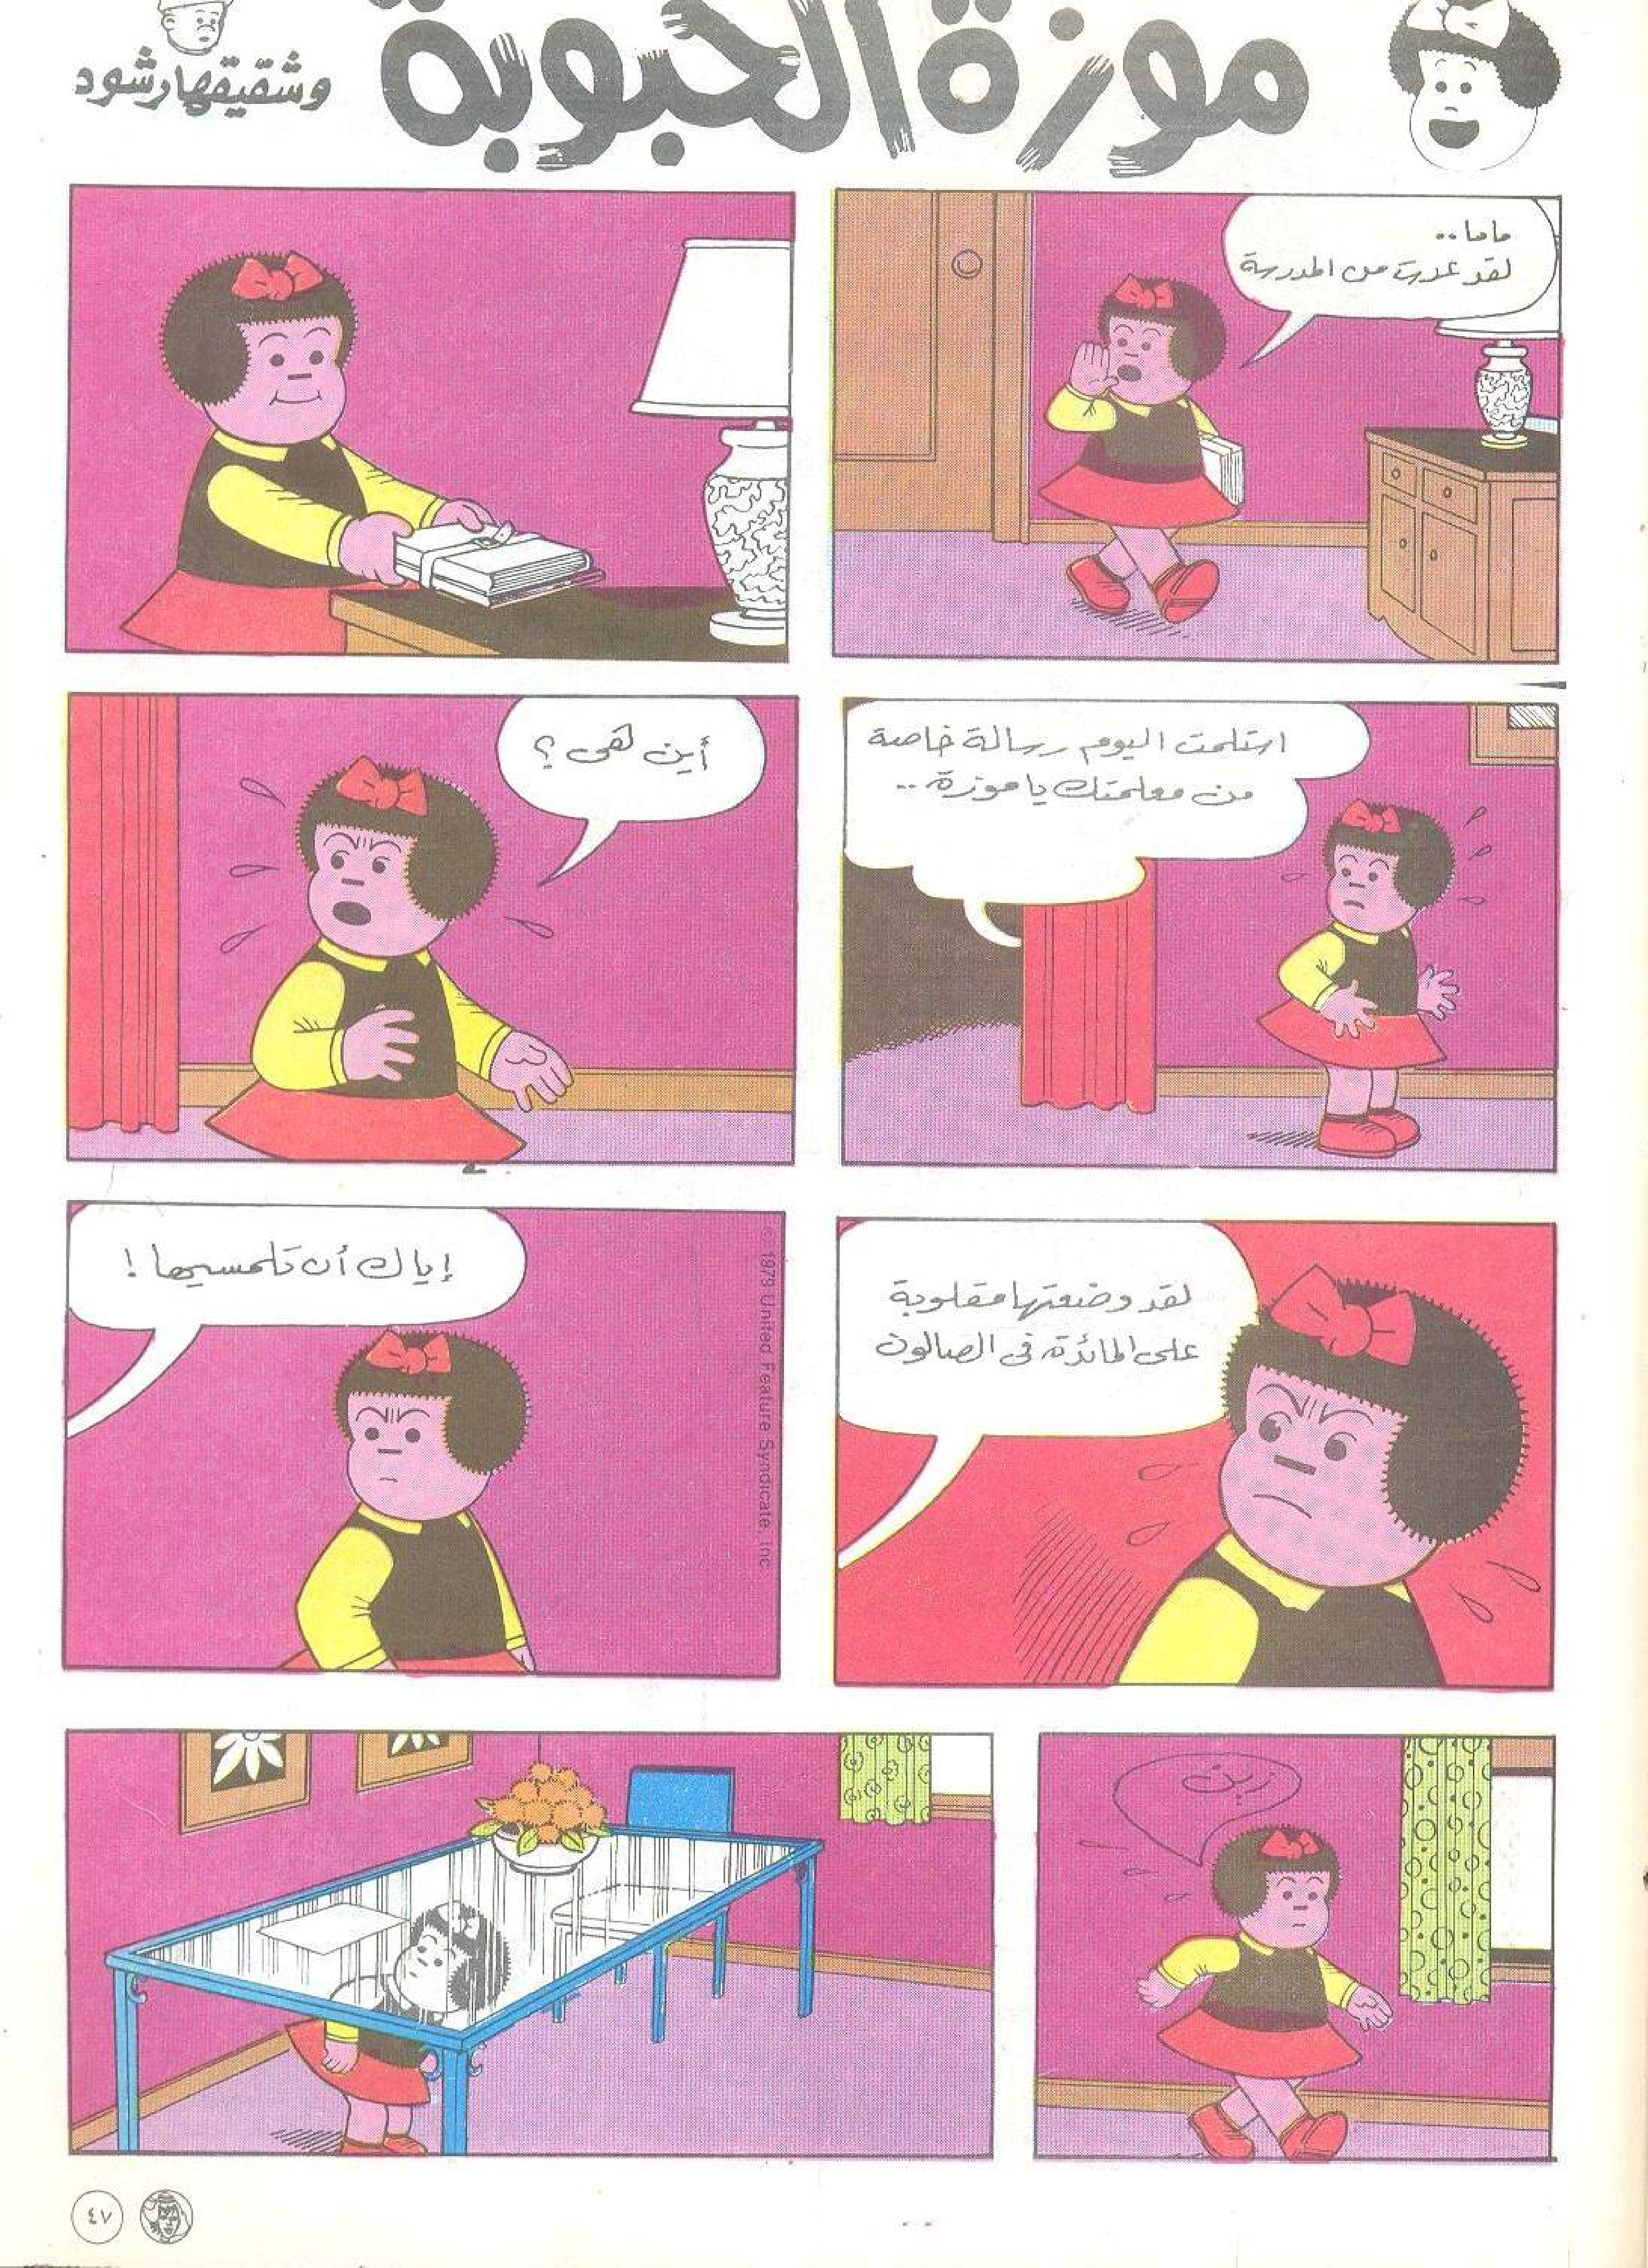 موزة الحبوبة
وشقيقها رشود
ماما..
لقد عدت من المدرسة
استلمت اليوم رسالة خاصة
من معلمتك يا موزة..
أين هى ؟
لقد وضعتها مقلوبة
على المائدة فى الصالون
إياك أن تلمسيها !
© 1979 United Feature Syndicate, Inc
زين
٤٧